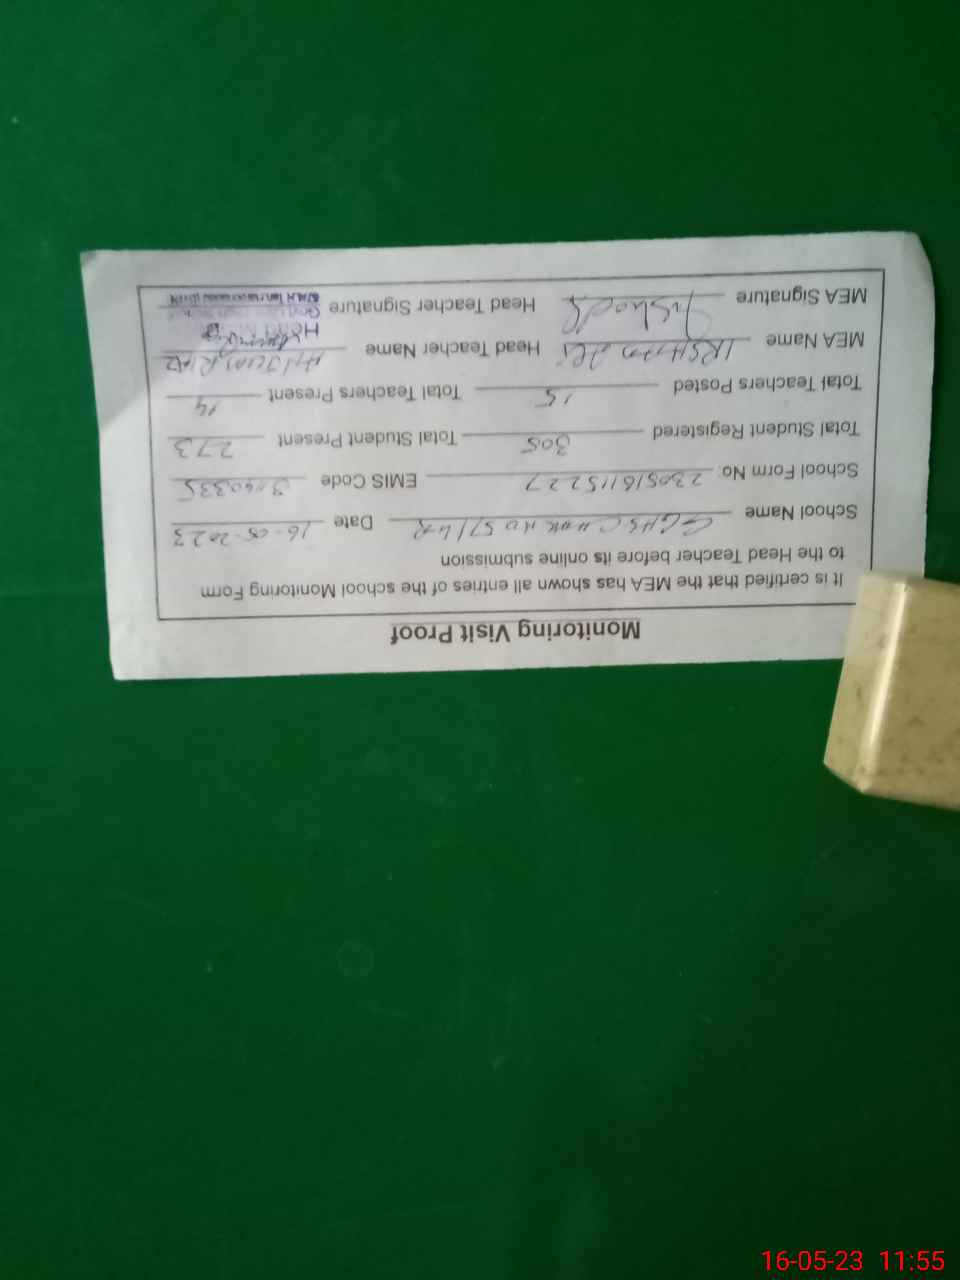 Monitoring Visit Proof
It is certified that the MEA has shown all entries of the school Monitoring Form
to the Head Teacher before its online submission
School Name GGHS CHAK NO 57/4-R Date 16-05-2023
School Form No: 230516115227 EMIS Code
Total Student Registered 305 Total Student Present 273
Total Teachers Posted 15 Total Teachers Present 14
MEA Name IRSHAD Ali Head Teacher Name ANJUM RIAZ
MEA Signature Head Teacher Signature
16-05-23 11:55